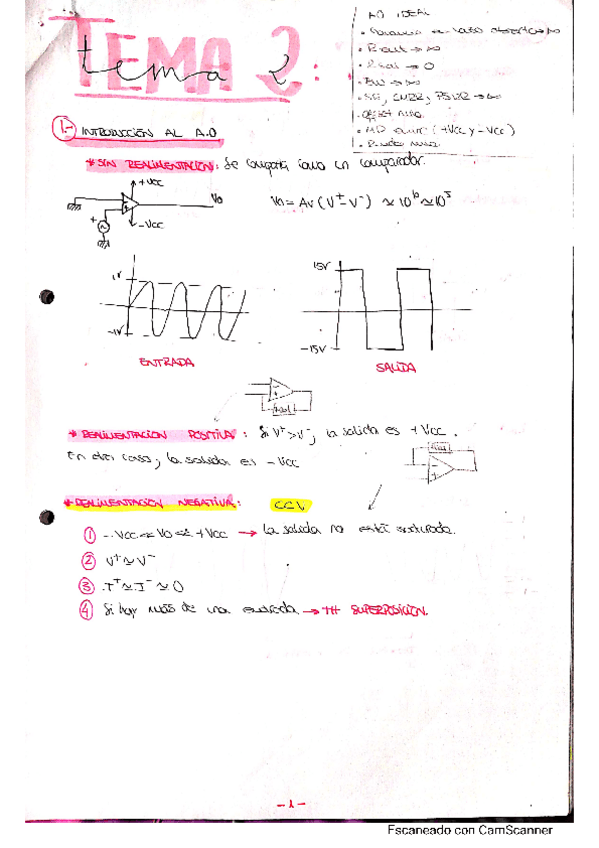 TEMA 2:
tema 2
AO IDEAL
• Ganancia en lazo abierto → ∞
• Rent → ∞
• Rsal → 0
• BW → ∞
• SR, CMRR, PSRR → ∞
• offset nulo
• Ruido nulo
1.- INTRODUCCIÓN AL A.O
* SIN REALIMENTACIÓN: Se comporta como un comparador.
+Vcc
Vo
-Vcc
+
Vo = Av (V⁺ - V⁻) ≃ 10⁶ ≃ 10⁵
1V
-1V
ENTRADA
15V
-15V
SALIDA
* REALIMENTACION POSITIVA: Si V⁺>V⁻, la salida es +Vcc.
En otro caso, la salida es -Vcc
* REALIMENTACION NEGATIVA: CCV
① -Vcc ≤ Vo ≤ +Vcc → la salida no está saturada.
② V⁺ ≃ V⁻
③ I⁺ ≃ I⁻ ≃ 0
④ Si hay más de una entrada → TH SUPERPOSICIÓN.
-1-
Escaneado con CamScanner